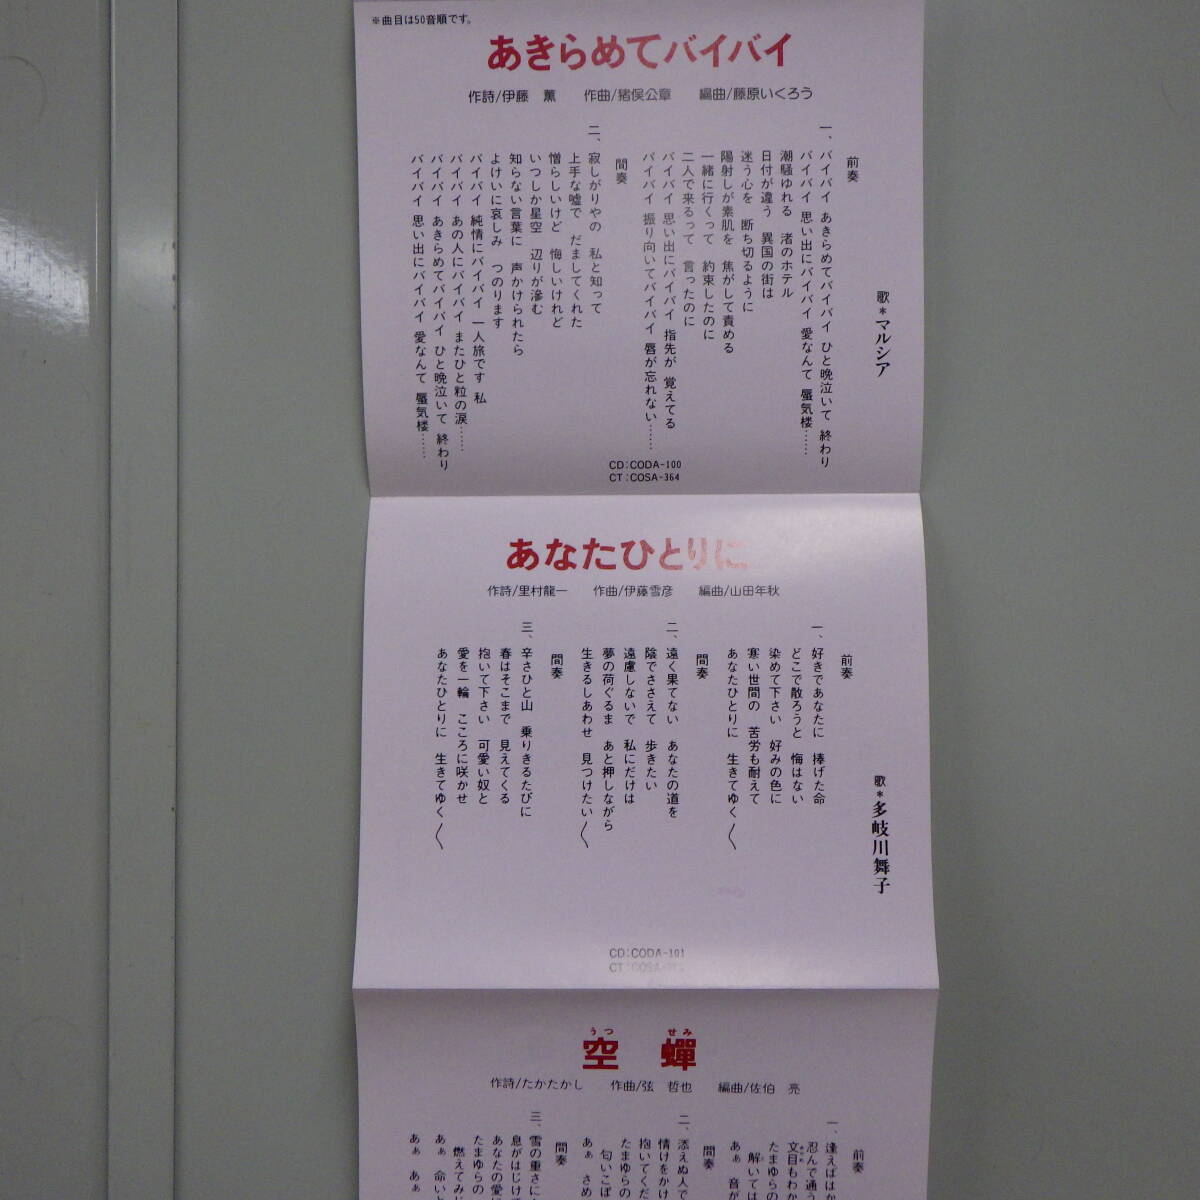 ※曲目は50音順です。
あきらめてバイバイ
作詩/伊藤　薫　作曲/猪俣公章　編曲/藤原いくろう
歌＊マルシア
前奏
一、バイバイ　あきらめてバイバイ　ひと晩泣いて　終わり
バイバイ　思い出にバイバイ　愛なんて　蜃気楼……
潮騒ゆれる　渚のホテル
日付が違う　異国の街は
迷う心を　断ち切るように
陽射しが素肌を　焦がして責める
一緒に行くって　約束したのに
二人で来るって　言ったのに
バイバイ　思い出にバイバイ　指先が　覚えてる
バイバイ　振り向いてバイバイ　唇が忘れない……
間奏
二、寂しがりやの　私と知って
上手な嘘で　だましてくれた
憎らしいけど　悔しいけれど
いつしか星空　辺りが滲む
知らない言葉に　声かけられたら
よけいに哀しみ　つのります
バイバイ　純情にバイバイ　一人旅です　私
バイバイ　あの人にバイバイ　またひと粒の涙……
バイバイ　あきらめてバイバイ　ひと晩泣いて　終わり
バイバイ　思い出にバイバイ　愛なんて　蜃気楼……
CD:CODA-100
CT:COSA-364
あなたひとりに
作詩/里村龍一　作曲/伊藤雪彦　編曲/山田年秋
歌＊多岐川舞子
前奏
一、好きであなたに　捧げた命
どこで散ろうと　悔はない
染めて下さい　好みの色に
寒い世間の　苦労も耐えて
あなたひとりに　生きてゆく〱
間奏
二、遠く果てない　あなたの道を
陰でささえて　歩きたい
遠慮しないで　私にだけは
夢の荷ぐるま　あと押しながら
生きるしあわせ　見つけたい〱
間奏
三、辛さひと山　乗りきるたびに
春はそこまで　見えてくる
抱いて下さい　可愛い奴と
愛を一輪　こころに咲かせ
あなたひとりに　生きてゆく〱
CD:CODA-101
CT:COSA-
うつ　せみ
空蟬
作詩/たかたかし　作曲/弦　哲也　編曲/佐伯　亮
前奏
一、逢えばはか
忍んで通う
文目もわか
たまゆらの
解いては
あぁ　音が
間奏
二、添えぬ人で
情けをかけ
抱いてくだ
たまゆらの
匂いこぼ
あぁ　さめ
間奏
三、雪の重さに
息がはじけて
あなたの愛に
たまゆらの
燃えてみ
あぁ　命いと
あぁ　あぁ